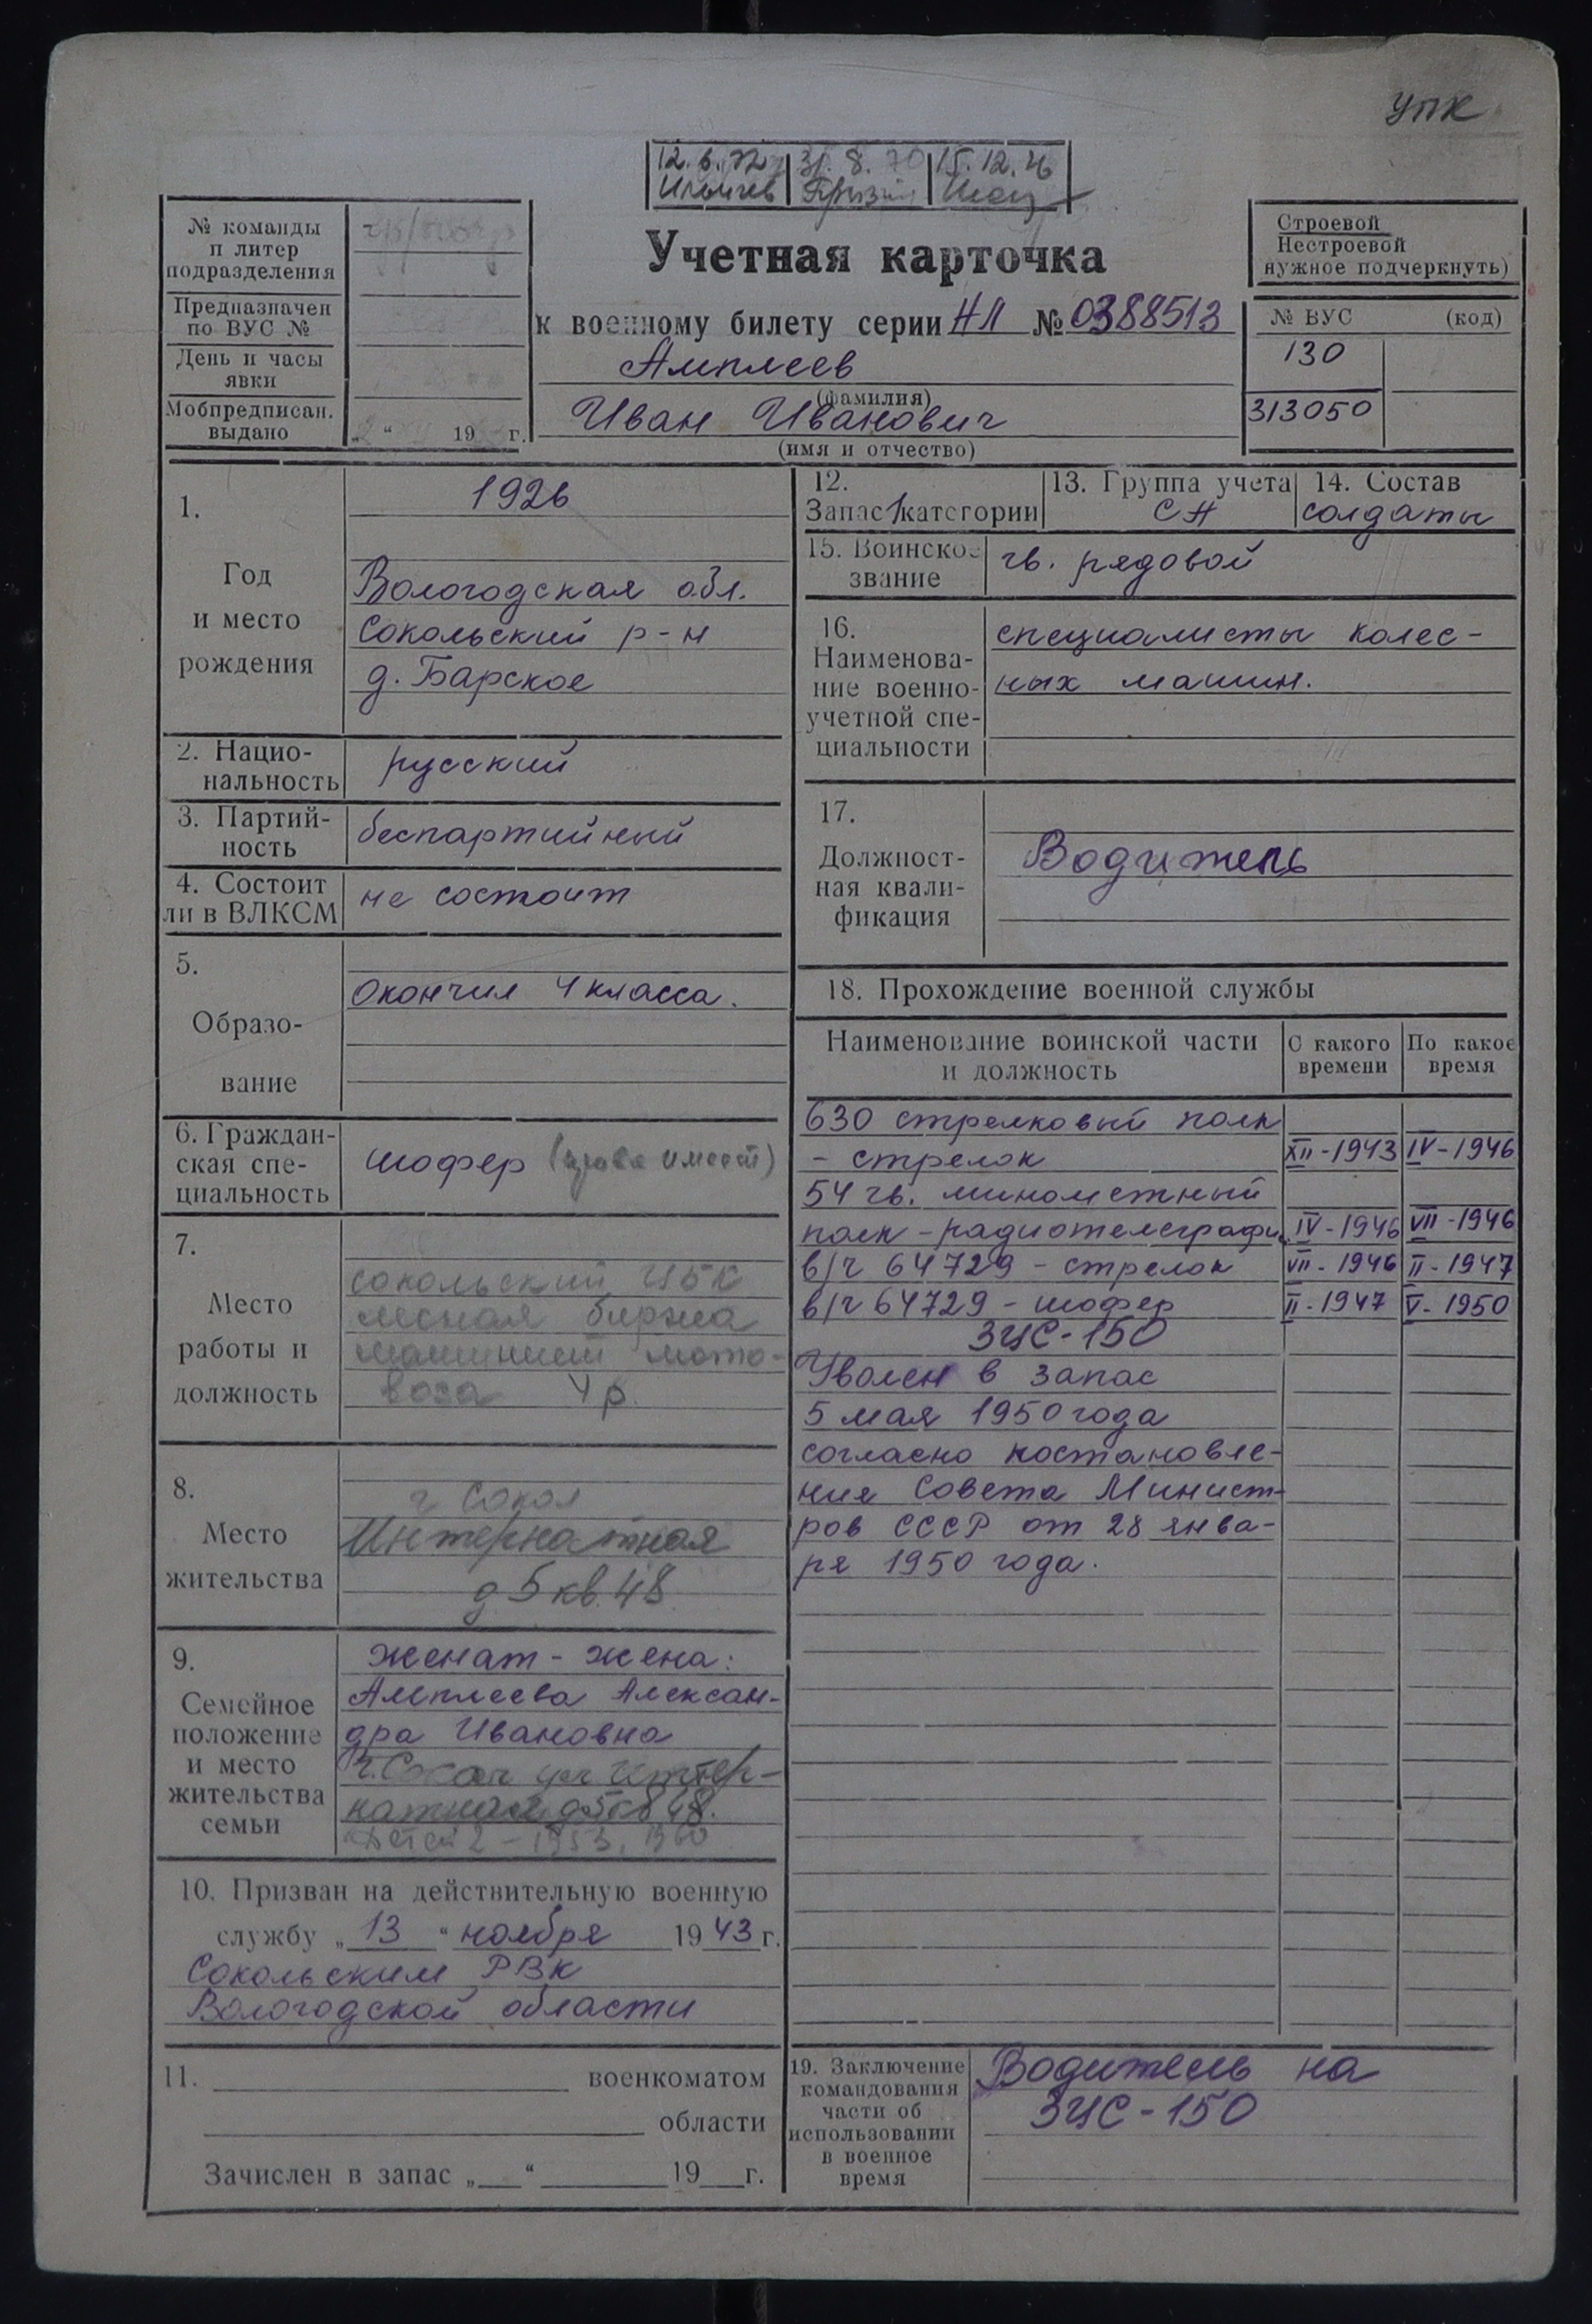 УПК
12.6.72 31.8.70 15.12.76
Учетная карточка
к военному билету серии НЛ № 0388513
Амплеев
(фамилия)
Иван Иванович
(имя и отчество)
№ команды
и литер
подразделения
Предназначен
по ВУС №
День и часы
явки
Мобпредписан.
выдано
„ “ 19 г.
Строевой
Нестроевой
нужное подчеркнуть)
№ ВУС (код)
130
313050
1.
Год
и место
рождения
1926
Вологодская обл.
Сокольский р-н
д. Барское
2. Нацио-
нальность
русский
3. Партий-
ность
беспартийный
4. Состоит
ли в ВЛКСМ
не состоит
5.
Образо-
вание
Окончил 4 класса.
6. Граждан-
ская спе-
циальность
шофер (права имеет)
7.
Место
работы и
должность
Сокольский ЦБК
лесная биржа
машинист мото-
воза 4 р.
8.
Место
жительства
г Сокол
Интернатная
д 5 кв. 48
9.
Семейное
положение
и место
жительства
семьи
женат - жена:
Амплеева Алексан-
дра Ивановна
г. Сокол ул Интер-
натная д 5 кв 48.
детей 2 - 1953, 1960
10. Призван на действительную военную
службу „13“ ноября 1943 г.
Сокольским РВК
Вологодской области
11. военкоматом
области
Зачислен в запас „ “ 19 г.
12.
Запас 1 категории
13. Группа учета
СА
14. Состав
солдаты
15. Воинское
звание
гв. рядовой
16.
Наименова-
ние военно-
учетной спе-
циальности
специалисты колес-
ных машин.
17.
Должност-
ная квали-
фикация
Водитель
18. Прохождение военной службы
Наименование воинской части
и должность
С какого
времени
По какое
время
630 стрелковый полк
- стрелок XII-1943 IV-1946
54 гв. минометный
полк - радиотелеграфи. IV-1946 VII-1946
в/ч 64729 - стрелок VII-1946 II-1947
в/ч 64729 - шофер II-1947 V-1950
ЗИС-150
Уволен в запас
5 мая 1950 года
согласно постановле-
ния Совета Минист-
ров СССР от 28 янва-
ря 1950 года.
19. Заключение
командования
части об
использовании
в военное
время
Водитель на
ЗИС-150